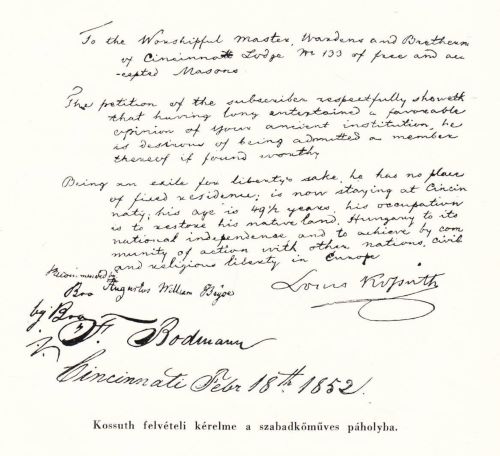 To the Worshipful Master, Wardens and Brethern
of Cincinnati Lodge No 133 of free and ac-
cepted Masons
The petition of the subscriber respectfully sheweth
that having long entertained a favorable
opinion of your ancient institution, he
is desirous of being admitted a member
thereof if found worthy
Being an exile for liberty's sake, he has no place
of fixed residence; is now staying at Cincin
naty; his age is 49½ years, his occupation
is to restore his native land, Hungary to its
national independence and to achieve by com
munity of action with other nations, civil
and religious liberty in Europe
Louis Kossuth
Recommended by
Bro Augustus William
by Bro
F. Bodmann
Cincinnati Febr 18th 1852.
Kossuth felvételi kérelme a szabadkőműves páholyba.